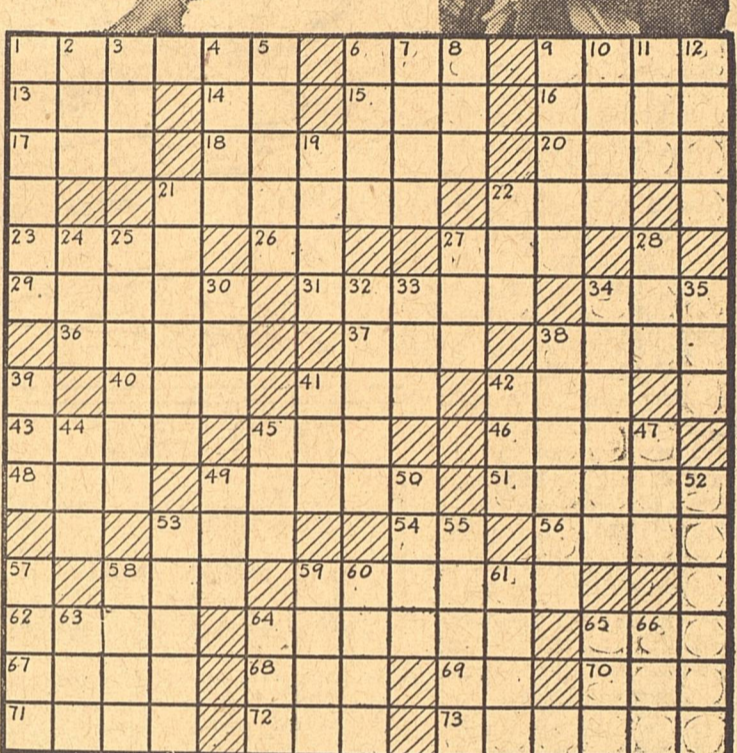 1 2 3 4 5 6 7 8 9 10 11 12
13 14 15 16
17 18 19 20
21 22
23 24 25 26 27 28
29 30 31 32 33 34 35
36 37 38
39 40 41 42
43 44 45 46 47
48 49 50 51 52
53 54 55 56
57 58 59 60 61
62 63 64 65 66
67 68 69 70
71 72 73